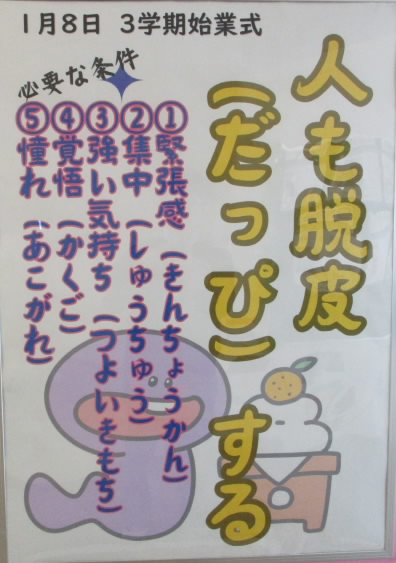 1月8日 3学期始業式
人も脱皮
(だっぴ)する
必要な条件
①緊張感(きんちょうかん)
②集中(しゅうちゅう)
③強い気持ち(つよいきもち)
④覚悟(かくご)
⑤憧れ(あこがれ)